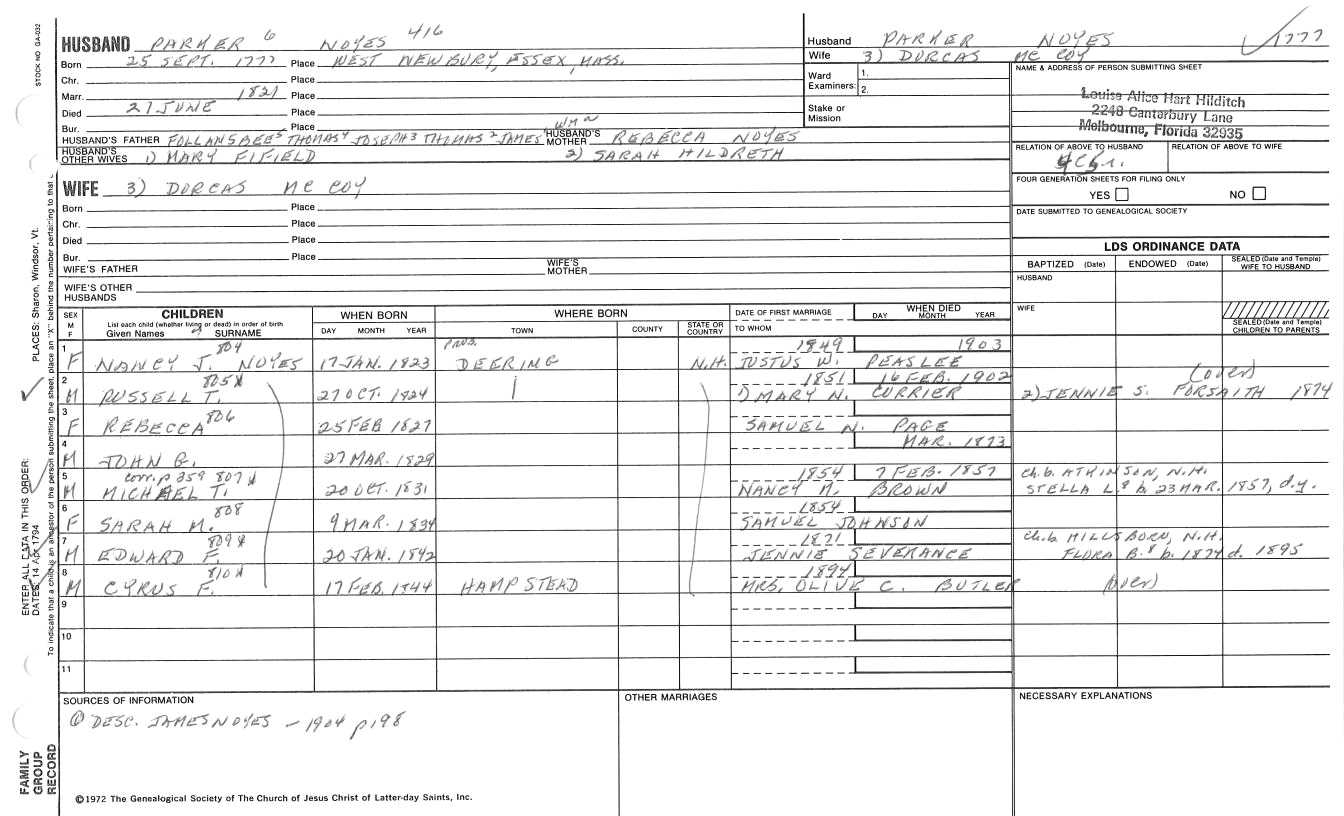 STOCK NO GA-032
PLACES: Sharon, Windsor, Vt.
ENTER ALL DATA IN THIS ORDER:
DATES: 14 Apr 1794
To indicate that a child is an ancestor of the person submitting the sheet, place an "X" behind the number pertaining to that
FAMILY GROUP RECORD
HUSBAND PARKER 6 NOYES 416
Born 25 SEPT. 1777 Place WEST NEWBURY, ESSEX, MASS.
Chr. Place
Marr. 1821 Place
Died 27 JUNE Place
Bur. Place
HUSBAND'S FATHER FOLLANSBEE 5 THOMAS 4 JOSEPH 3 THOMAS 2 JAMES HUSBAND'S MOTHER REBECCA NOYES
HUSBAND'S OTHER WIVES 1) MARY FIFIELD 2) SARAH HILDRETH
Husband PARKER NOYES 1777
Wife 3) DORCAS MC COY
Ward Examiners: 1.
2.
Stake or Mission
NAME & ADDRESS OF PERSON SUBMITTING SHEET
Louise Alice Hart Hilditch
2248 Canterbury Lane
Melbourne, Florida 32935
RELATION OF ABOVE TO HUSBAND RELATION OF ABOVE TO WIFE
FOUR GENERATION SHEETS FOR FILING ONLY
YES NO
DATE SUBMITTED TO GENEALOGICAL SOCIETY
WIFE 3) DORCAS MC COY
Born Place
Chr. Place
Died Place
Bur. Place
WIFE'S FATHER WIFE'S MOTHER
WIFE'S OTHER HUSBANDS
LDS ORDINANCE DATA
BAPTIZED (Date) ENDOWED (Date) SEALED (Date and Temple) WIFE TO HUSBAND
HUSBAND
WIFE
SEALED (Date and Temple) CHILDREN TO PARENTS
SEX M F CHILDREN WHEN BORN WHERE BORN DATE OF FIRST MARRIAGE WHEN DIED
List each child (whether living or dead) in order of birth
Given Names SURNAME DAY MONTH YEAR TOWN COUNTY STATE OR COUNTRY TO WHOM DAY MONTH YEAR
1 804 PROB. 1849 1903
F NANCY J. NOYES 17 JAN. 1823 DEERING N.H. JUSTUS W. PEASLEE
2 805X 1851 16 FEB. 1902 (over)
M RUSSELL T. 27 OCT. 1824 1) MARY N. CURRIER 2) JENNIE S. FORSAITH 1874
3 806
F REBECCA 25 FEB 1827 SAMUEL N. PAGE
4 MAR. 1873
M JOHN G. 27 MAR. 1829
5 corr. p 359 807X 1854 7 FEB. 1857 ch. b. ATKINSON, N.H.
M MICHAEL T. 20 OCT. 1831 NANCY M. BROWN STELLA L. 8 b. 23 MAR. 1857, d.y.
6 808 1854
F SARAH M. 9 MAR. 1834 SAMUEL JOHNSON
7 809X 1871 ch. b. HILLSBORN, N.H.
M EDWARD F. 20 JAN. 1842 JENNIE SEVERANCE FLORA B. 8 b. 1874 d. 1895
8 810X 1894 (over)
M CYRUS F. 17 FEB. 1844 HAMPSTEAD MRS. OLIVE C. BUTLER
9
10
11
SOURCES OF INFORMATION OTHER MARRIAGES NECESSARY EXPLANATIONS
① DESC. JAMES NOYES - 1904 p 198
©1972 The Genealogical Society of The Church of Jesus Christ of Latter-day Saints, Inc.